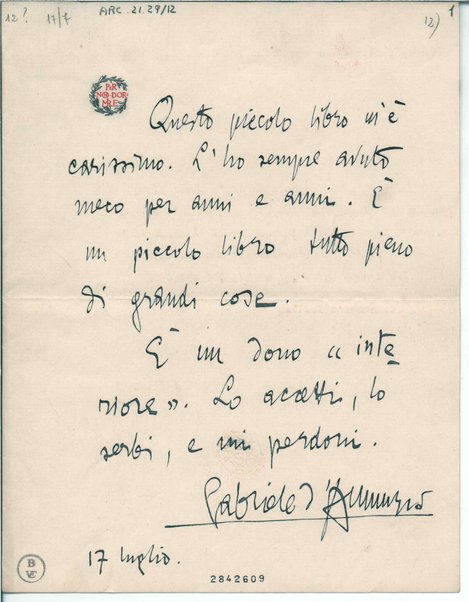 12? 17/7 ARC. 21. 29/12 12) 1
PER
NON DOR
MIRE
Questo piccolo libro m'è
carissimo. L'ho sempre avuto
meco per anni e anni. È
un piccolo libro tutto pieno
di grandi cose.
È un dono "inte
riore". Lo accetti, lo
serbi, e mi perdoni.
Gabriele d'Annunzio
17 luglio.
BVE
2842609